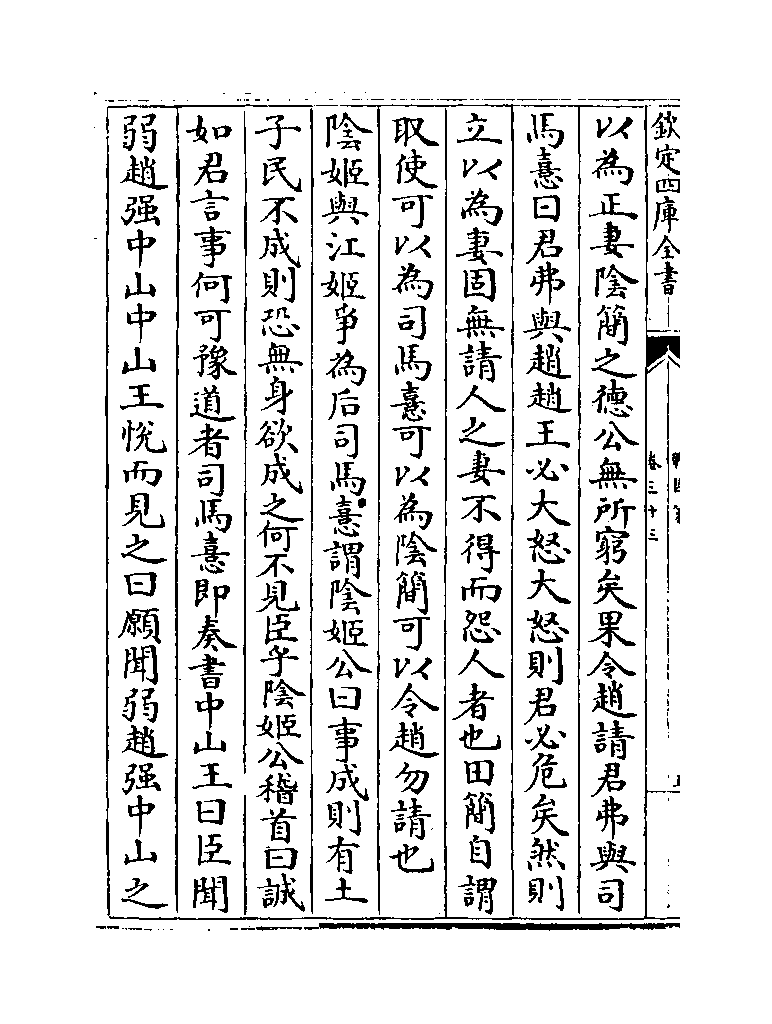 欽定四庫全書
卷三十三
以為正妻陰簡之德公無所窮矣果令趙請君弗與司
馬憙曰君弗與趙趙王必大怒大怒則君必危矣然則
立以為妻固無請人之妻不得而怨人者也田簡自謂
取使可以為司馬憙可以為陰簡可以令趙勿請也
陰姬與江姬爭為后司馬憙謂陰姬公曰事成則有土
子民不成則恐無身欲成之何不見臣乎陰姬公稽首曰誠
如君言事何可豫道者司馬憙即奏書中山王曰臣聞
弱趙强中山中山王悅而見之曰願聞弱趙强中山之